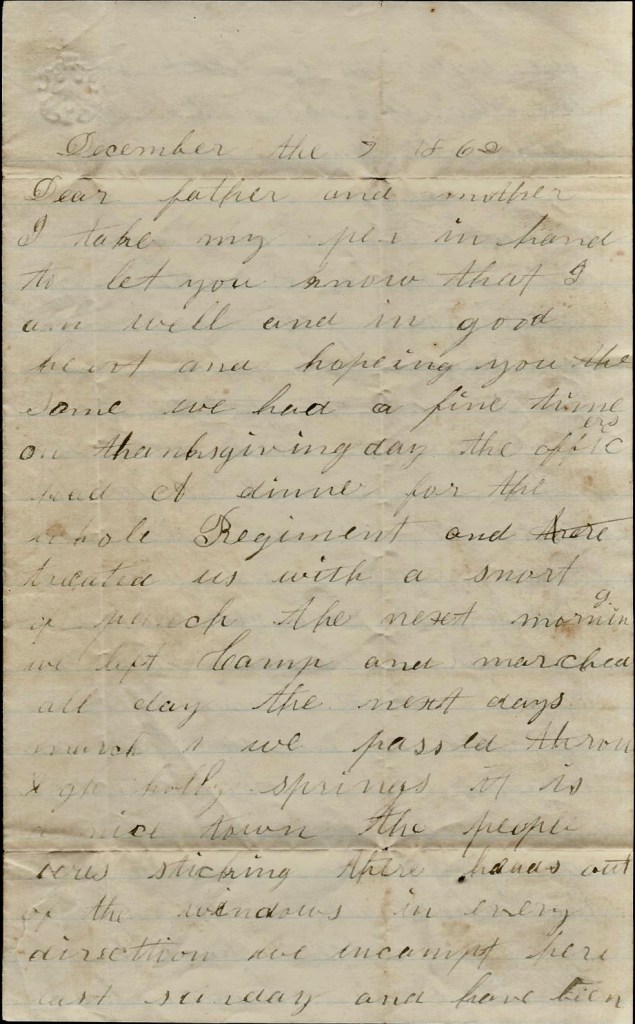 December the 7 1862
Dear father and mother
I take my pen in hand
to let you know that I
am well and in good
heart and hopeing you the
same we had a fine time
on thanksgiving day the officers
had A dinner for the
whole Regiment and there
treated us with a snort
of punch the next morning
we left Camp and marched
all day the next days
march we passed throu
gh holly springs it is
a nice town the people
were sticking there heads out
of the windows in every
direction we incampt here
last sunday and have been